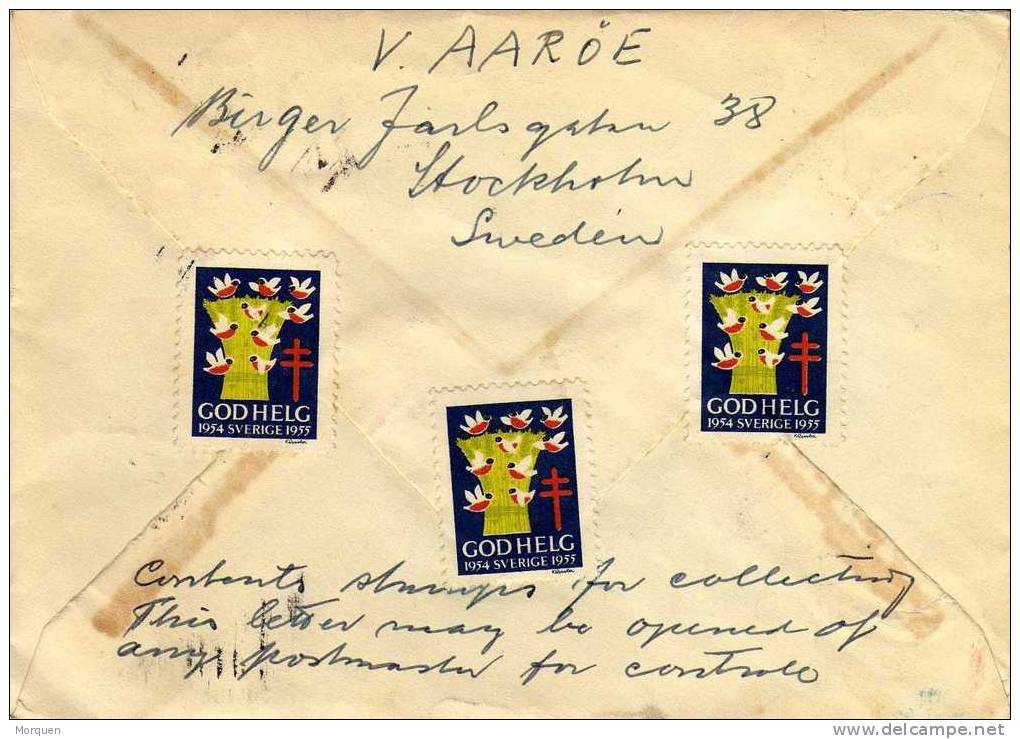 V. AARÖE
Birger Jarlsgatan 38
Stockholm
Sweden
GOD HELG
1954 SVERIGE 1955
GOD HELG
1954 SVERIGE 1955
GOD HELG
1954 SVERIGE 1955
Contents stamps for collecting
This letter may be opened of
any postmaster for controle
Morquen
www.delcampe.net